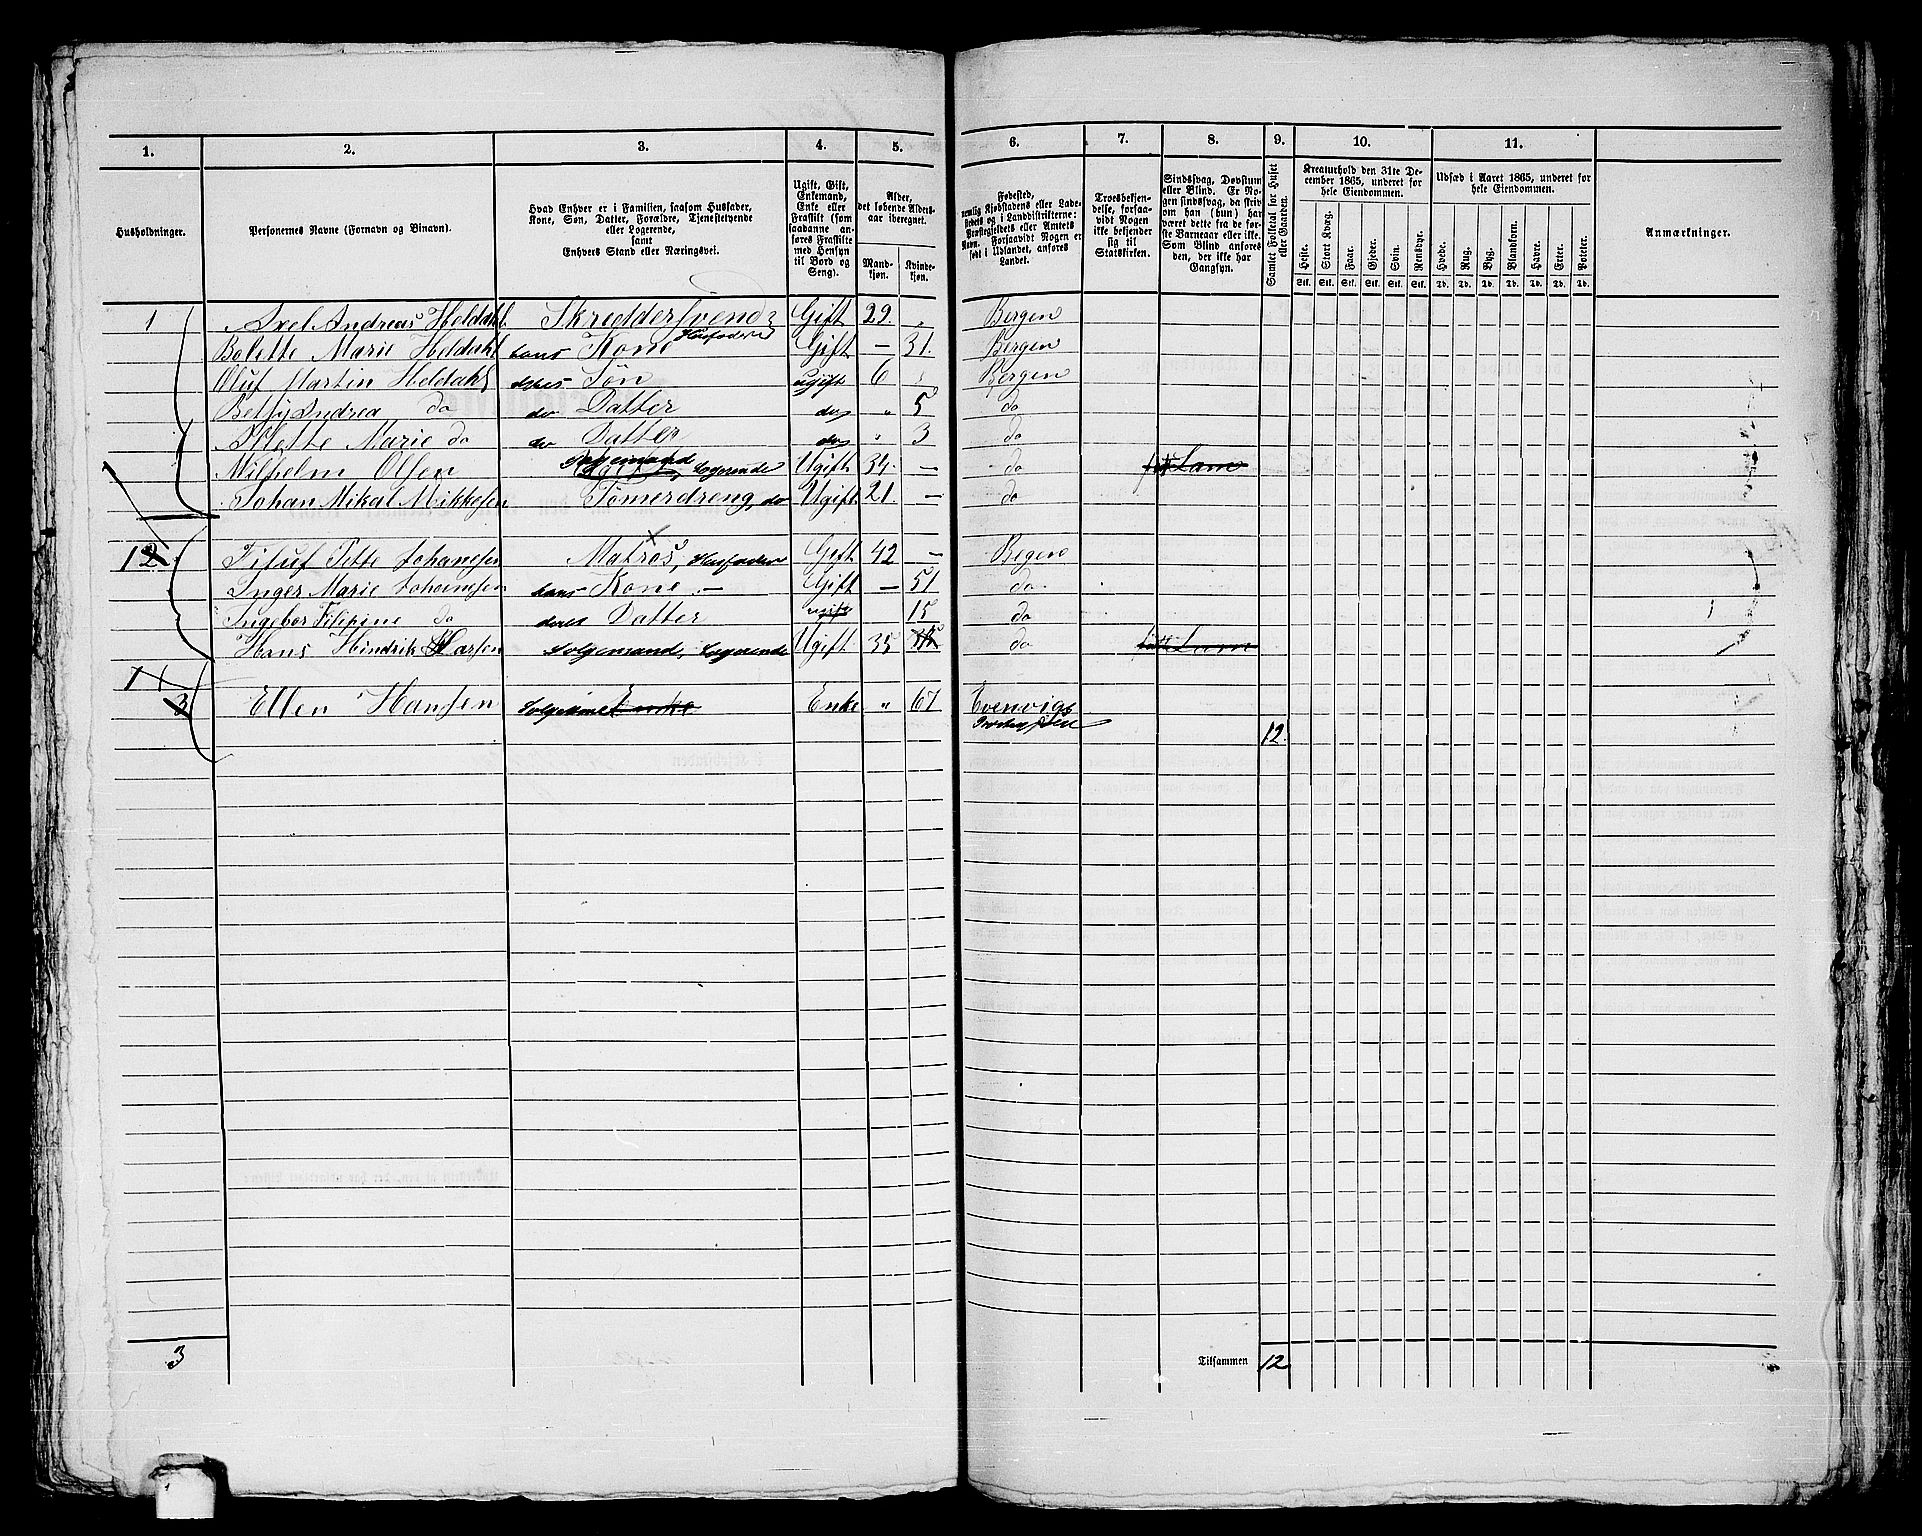 1. 2. 3. 4. 5. 6. 7. 8. 9. 10. 11.
Husholdninger.
Personernes Navne (Fornavn og Binavn).
Hvad Enhver er i Familien, saasom Husfader,
Kone, Søn, Datter, Forældre, Tjenestetyende
eller Logerende,
samt
Enhvers Stand eller Næringsvei.
Ugift, Gift,
Enkemand,
Enke eller
Fraskilt (som
saadanne an-
føres Fraskilte
med Hensyn
til Bord og
Seng).
Alder,
det løbende Alders-
aar iberegnet.
Mand-
kjøn.
Kvinde-
kjøn.
Fødested,
nemlig Kjøbstadens eller Lade-
stedets og i Landdistrikterne:
Præstegjeldets eller Amtets
Navn. Forsaavidt Nogen er
født i Udlandet, anføres
Landet.
Troesbekjen-
delse, forsaa-
vidt Nogen
ikke bekjender
sig til
Statskirken.
Sindssvag, Døvstum
eller Blind. Er No-
gen sindssvag, da skriv
om han (hun) har
været dette fra de før-
ste Barneaar eller ikke.
Som Blind anføres
den, der ikke har
Gangsyn.
Samlet Folketal for Huset
eller Gaarden.
Kreaturhold den 31te De-
cember 1865, underet for
hele Eiendommen.
Heste. Stort Kvæg. Faar. Gjeder. Svin. Rensdyr.
Stk. Stk. Stk. Stk. Stk. Stk.
Udsæd i Aaret 1865, underet for
hele Eiendommen.
Hvede. Rug. Byg. Blandkorn. Havre. Erter. Poteter.
Td. Td. Td. Td. Td. Td. Td.
Anmærkninger.
1 Axel Andreas Heldahl Skrædersvend Husfader Gift 29. " Bergen
Bolette Marie Heldahl hans Kone Gift — 31. Bergen
Oluf Martin Heldahl deres Søn ugift 6 " Bergen
Betsy Andrea do do Datter do " 5 do
Marie do do Datter do " 3 do
Wilhelm Olsen Sølgemand, Logerende Ugift 34. — do Lam
Johan Mikal Mikkelsen Tømerdreng, do Ugift 21. — do
12 Johanesen Matros, Husfader Gift 42 — Begen
Inger Marie Johanesen hans Kone — Gift — 51 do
Ingebor Filipine do deres Datter ugift 15 do
Hans Hindrik Larsen Sølgemand, Logerende Ugift 35 do Lam
1
3 Ellen Hansen Enke Enke " 67 Evenvigs
12.
3 Tilsammen 12